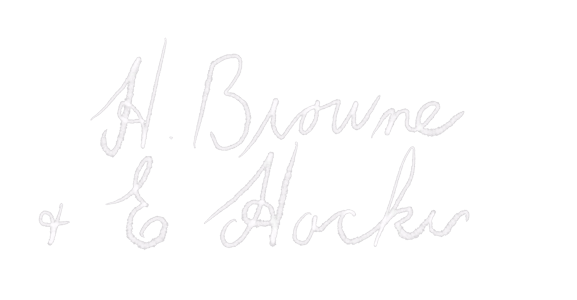 H. Browne
& E Hocks